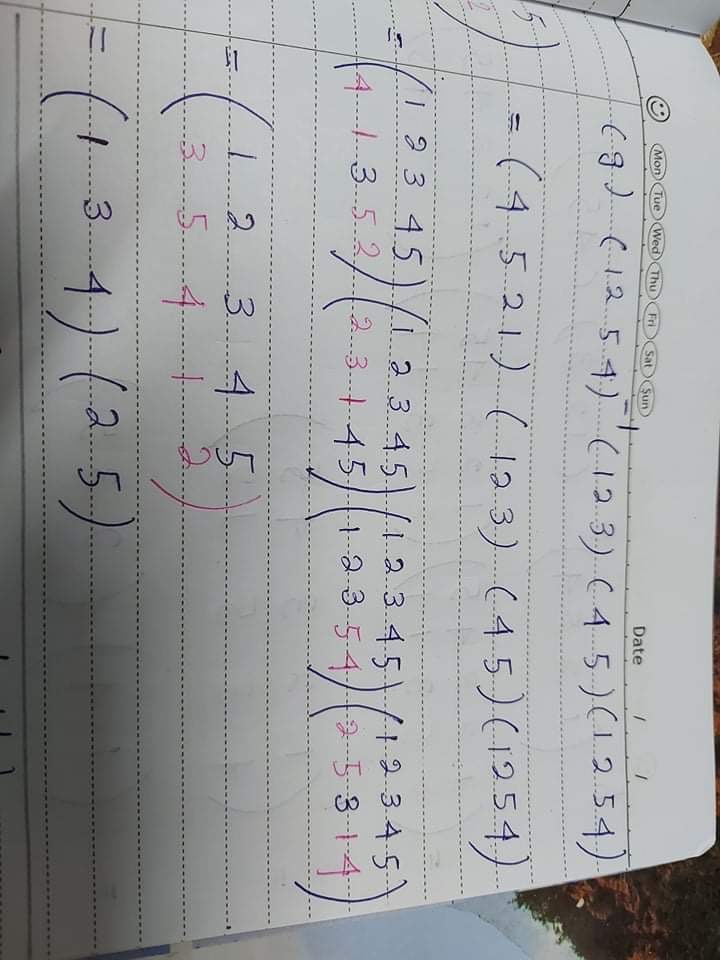 Mon Tue Wed Thu Fri Sat Sun Date / /
(g) (1 2 5 4)⁻¹ (1 2 3) (4 5) (1 2 5 4)
= (4 5 2 1) (1 2 3) (4 5) (1 2 5 4)
5
2 )
= (1 2 3 4 5) (1 2 3 4 5) (1 2 3 4 5) (1 2 3 4 5)
4 1 3 5 2 2 3 1 4 5 1 2 3 5 4 2 5 3 1 4
= (1 2 3 4 5
3 5 4 1 2)
= (1 3 4) (2 5)